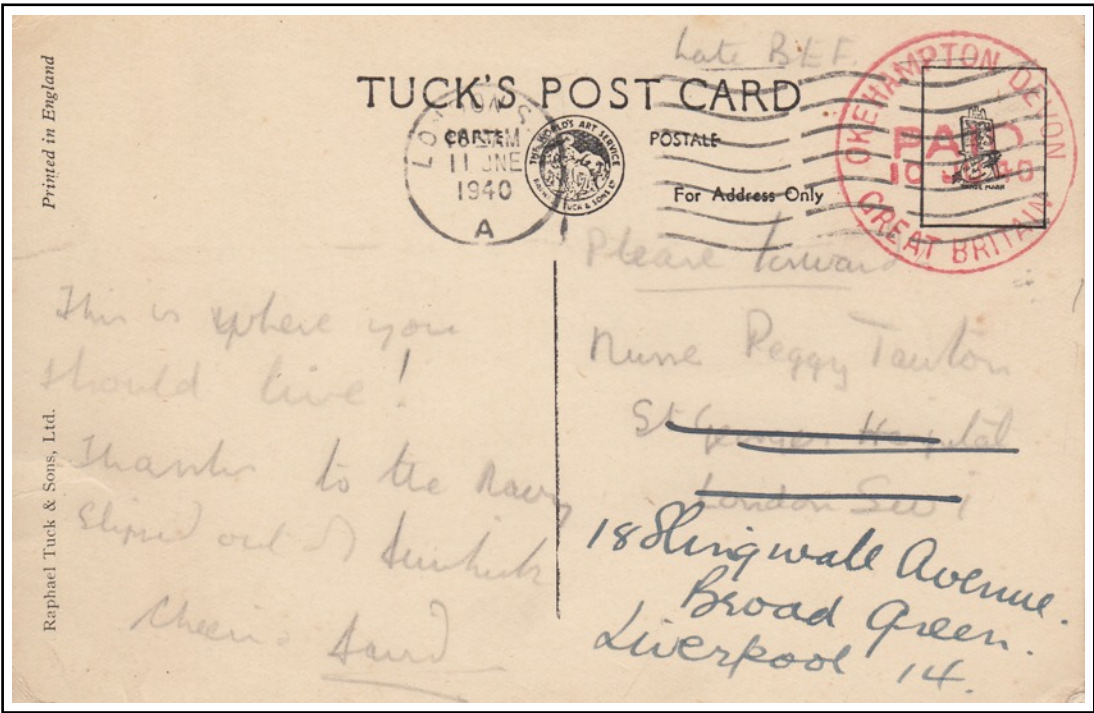 Printed in England
Raphael Tuck & Sons, Ltd.
Late B.E.F.
TUCK'S POST CARD
CARTE POSTALE
For Address Only
THE WORLD'S ART SERVICE
RAPHAEL TUCK & SONS LTD
LONDON S
11 JNE
1940
A
OKEHAMPTON DEVON
PAID
10 JU 40
GREAT BRITAIN
TRADE MARK
This is where you
should live!
Thanks to the Navy
slipped out of Dunkirk
Cheerio David
Please forward
Nurse Peggy Taunton
St Georges Hospital
London SW1
18 Avenue.
Broad Green.
Liverpool 14.